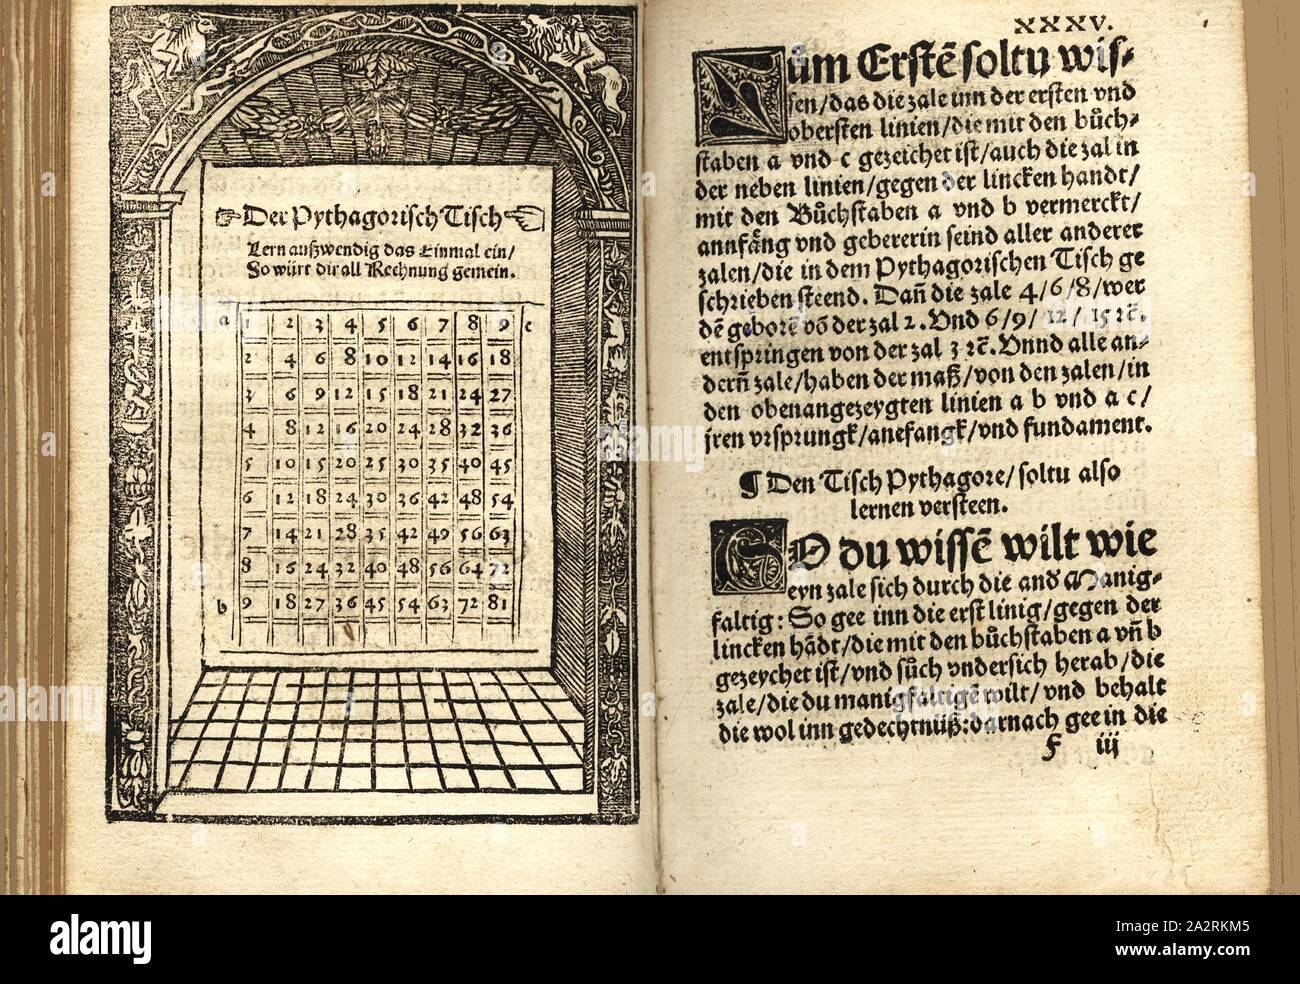 Der Pythagorisch Tisch
Lern außwendig das Einmal ein/
So würt dir all Rechnung gemein.
a 1 2 3 4 5 6 7 8 9 c
2 4 6 8 10 12 14 16 18
3 6 9 12 15 18 21 24 27
4 8 12 16 20 24 28 32 36
5 10 15 20 25 30 35 40 45
6 12 18 24 30 36 42 48 54
7 14 21 28 35 42 49 56 63
8 16 24 32 40 48 56 64 72
b 9 18 27 36 45 54 63 72 81
XXXV.
Zům Erstẽ soltu wis-
sen/das die zale inn der ersten vnd
obersten linien/die mit den bůch-
staben a vnd c gezeichet ist/auch die zal in
der neben linien/gegen der lincken handt/
mit den Bůchstaben a vnd b vermerckt/
annfäng vnd gebererin seind aller anderer
zalen/die in dem Pythagorischen Tisch ge
schrieben steend. Dañ die zale 4/6/8/wer
dẽ geborẽ võ der zal 2. Vnd 6/9/12/15 ꝛc̃.
entspringen von der zal 3 ꝛc̃. Vnnd alle an-
dern̄ zale/haben der maß/von den zalen/in
den obenangezeygten linien a b vnd a c/
jren vrsprungk/anefangk/vnd fundament.
¶ Den Tisch Pythagore/soltu also
lernen versteen.
SO du wissẽ wilt wie
eyn zale sich durch die and Manig-
faltig: So gee inn die erst linig/gegen der
lincken hãdt/die mit den bůchstaben a vñ b
gezeychet ist/vnd sůch vndersich herab/die
zale/die du manigfaltigẽ wilt/vnd behalt
die wol inn gedechtnüß:darnach gee in die
F iij
alamy
Image ID: 2A2RKM5
www.alamy.com